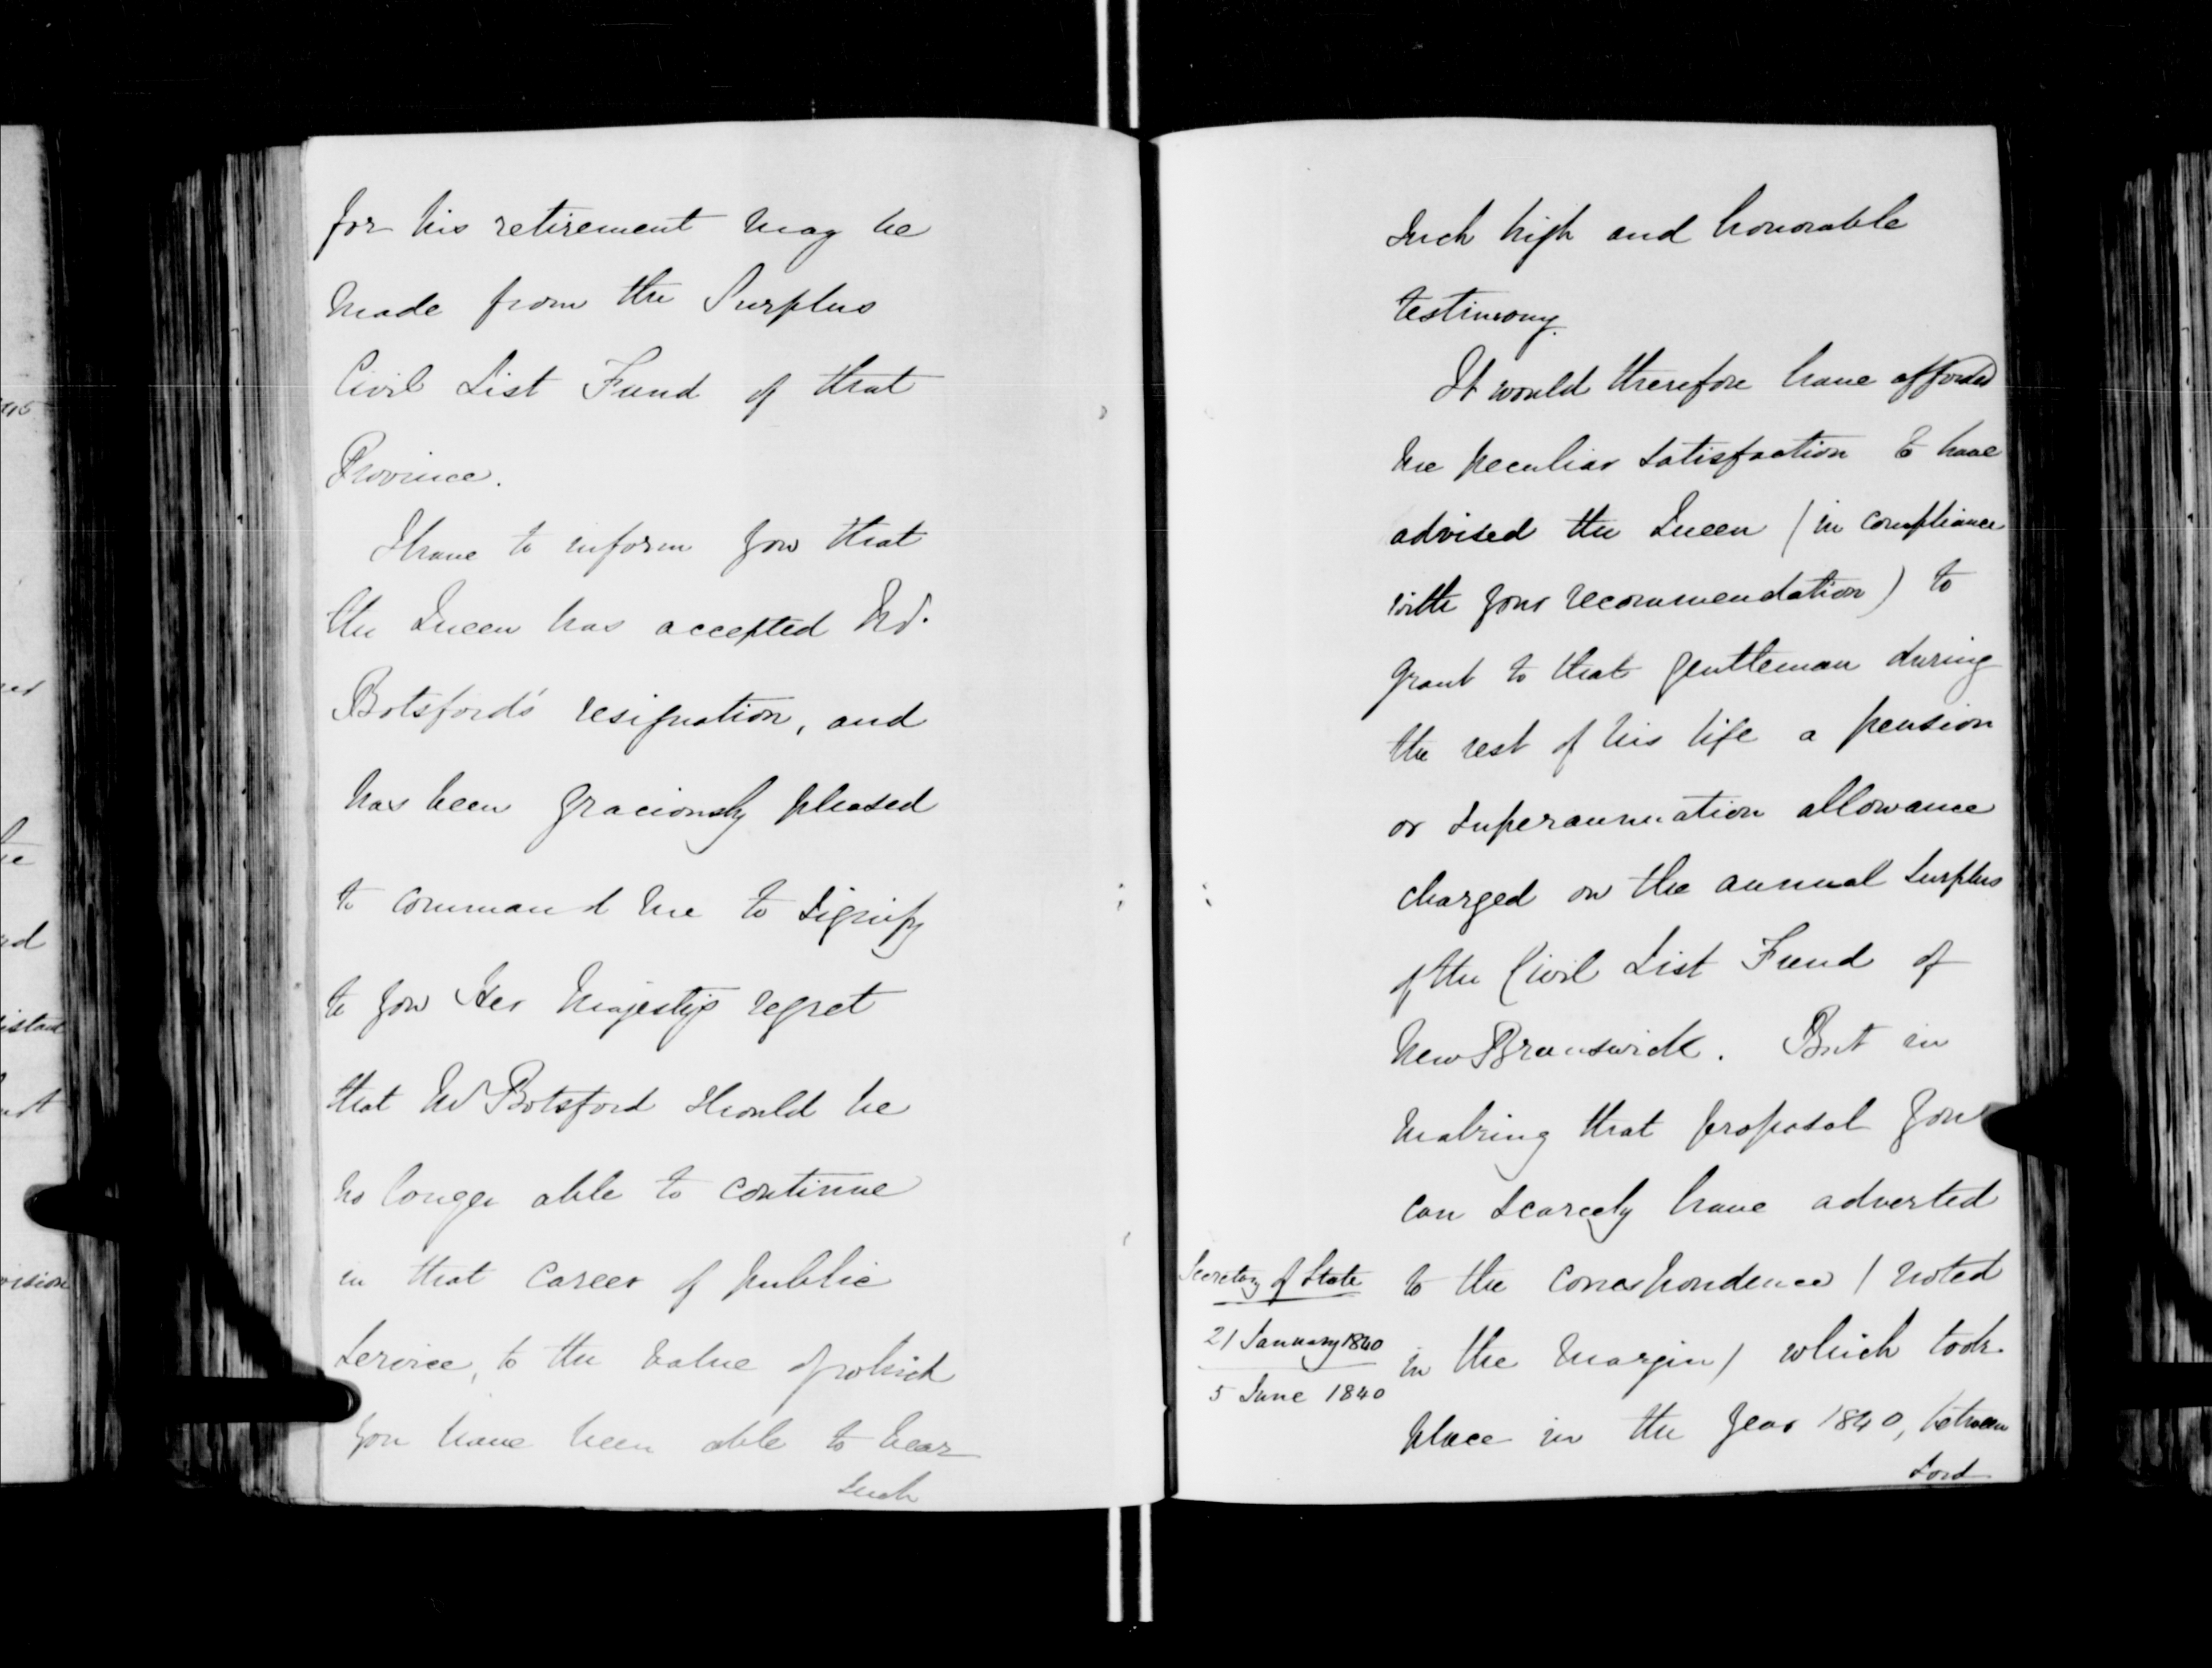 for his retirement may be
made from the Surplus
Civil List Fund of that
Province.
I have to inform you that
the Queen has accepted Mr.
Botsford's resignation, and
has been graciously pleased
to command me to signify
to you Her Majesty's regret
that Mr Botsford should be
no longer able to continue
in that career of public
Service, to the value of which
you have been able to bear
such
such high and honorable
testimony.
It would therefore have afforded
me peculiar satisfaction to have
advised the Queen (in compliance
with your recommendation) to
grant to that gentleman during
the rest of his life a pension
or superannuation allowance
charged on the annual surplus
of the Civil List Fund of
New Brunswick. But in
making that proposal you
can scarcely have adverted
Secretary of State
to the correspondence (noted
21 January 1840
in the margin) which took
5 June 1840
place in the year 1840, between
Lord